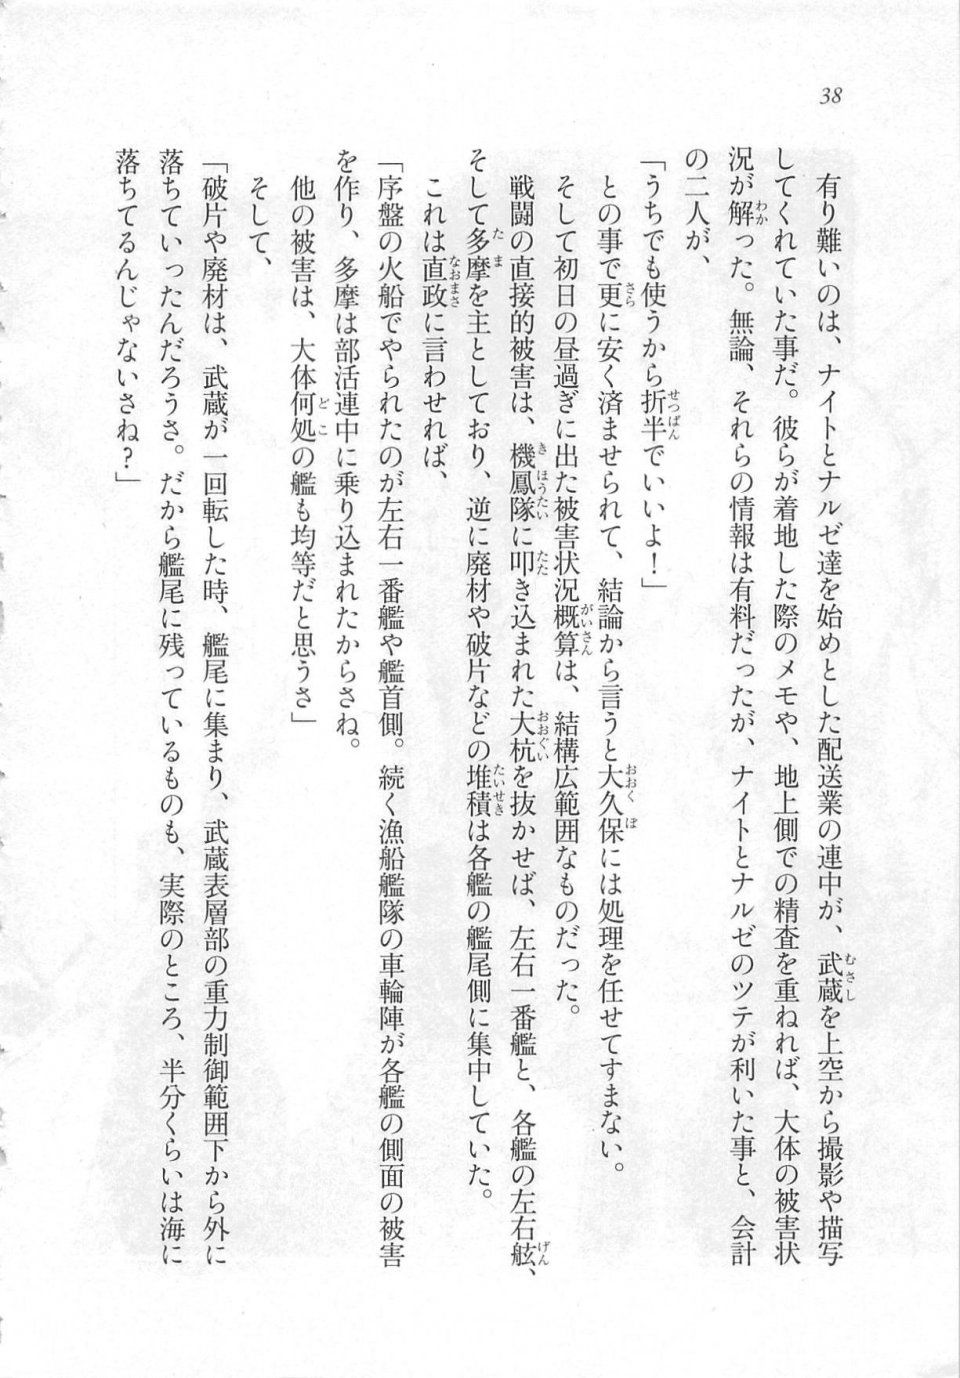 38
有り難いのは、ナイトとナルゼ達を始めとした配送業の連中が、武蔵を上空から撮影や描写
してくれていた事だ。彼らが着地した際のメモや、地上側での精査を重ねれば、大体の被害状
況が解った。無論、それらの情報は有料だったが、ナイトとナルゼのツテが利いた事と、会計
の二人が、
「うちでも使うから折半でいいよ！」
との事で更に安く済ませられて、結論から言うと大久保には処理を任せてすまない。
そして初日の昼過ぎに出た被害状況概算は、結構広範囲なものだった。
戦闘の直接的被害は、機鳳隊に叩き込まれた大杭を抜かせば、左右一番艦と、各艦の左右舷、
そして多摩を主としており、逆に廃材や破片などの堆積は各艦の艦尾側に集中していた。
これは直政に言わせれば、
「序盤の火船でやられたのが左右一番艦や艦首側。続く漁船艦隊の車輪陣が各艦の側面の被害
を作り、多摩は部活連中に乗り込まれたからさね。
他の被害は、大体何処の艦も均等だと思うさ」
そして、
「破片や廃材は、武蔵が一回転した時、艦尾に集まり、武蔵表層部の重力制御範囲下から外に
落ちていったんだろうさ。だから艦尾に残っているものも、実際のところ、半分くらいは海に
落ちてるんじゃないさね？」